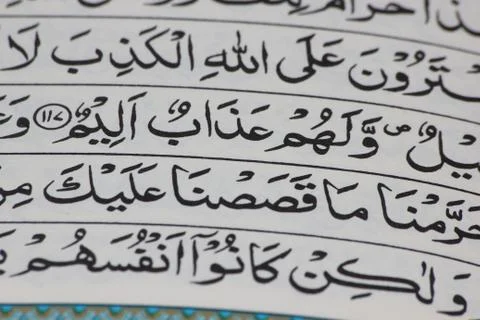 حَرَامٌ
تَرُوْنَ عَلَى اللّٰهِ الْكَذِبَ لَا
يْلٌ ۖ وَّلَهُمْ عَذَابٌ اَلِيْمٌ ﴿۱۱۷﴾ وَعَ
حَرَّمْنَا مَا قَصَصْنَا عَلَيْكَ مِنْ
وَلٰكِنْ كَانُوْٓا اَنْفُسَهُمْ يَ